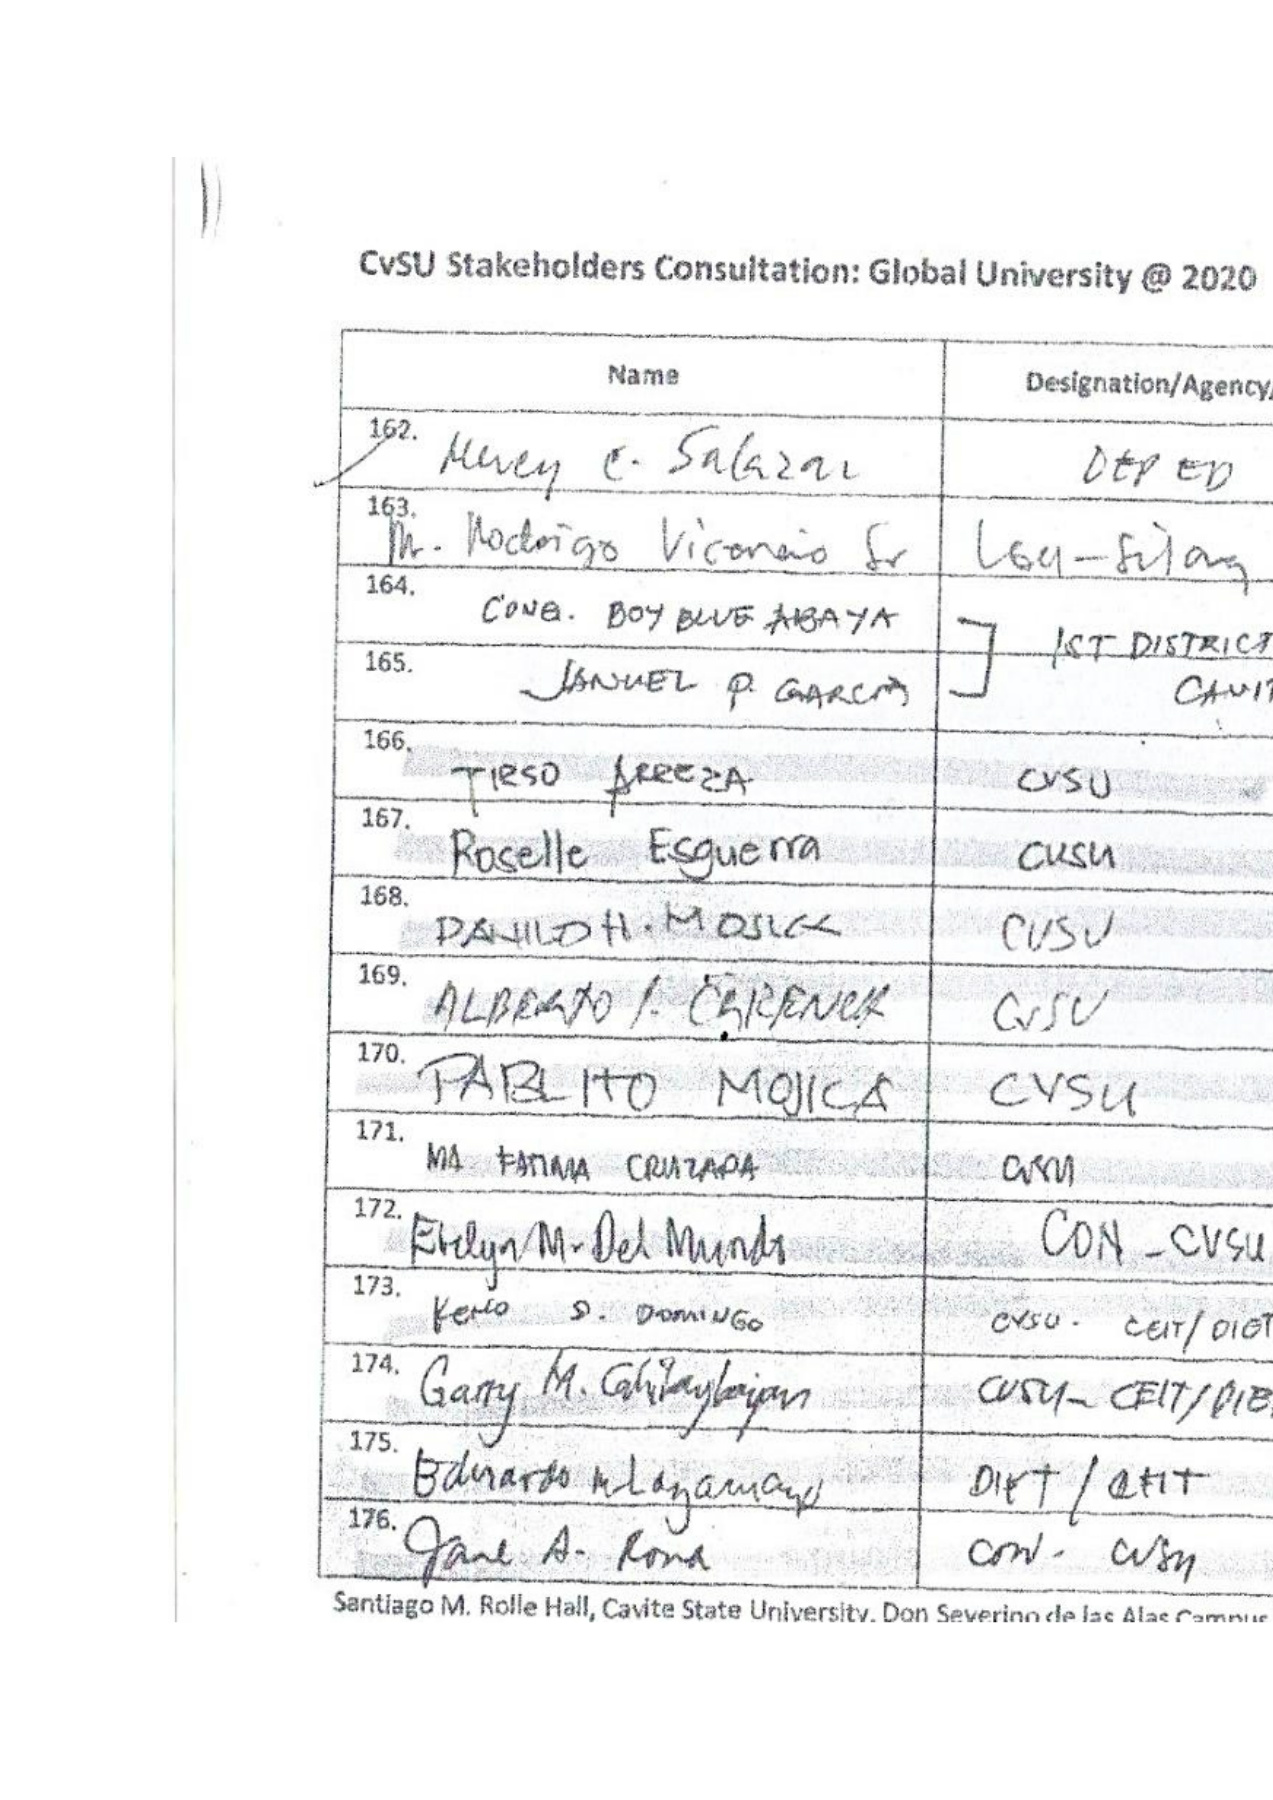 CvSU Stakeholders Consultation: Global University @ 2020
Name Designation/Agency/
162. C. Salazar DEP ED
163. Mr. Rodrigo Sr LGU-Silang
164. CONG. BOY BLUE ABAYA
1ST DISTRICT
165. JANUEL P. GARCIA
CAVIT
166. TIRSO ARREZA CVSU
167. Roselle Esguerra CVSU
168. DANILO H. MOJICA CVSU
169. ALBERTO CvSU
170. PABLITO MOJICA CVSU
171. MA FATIMA CRUZADA CVSU
172. Evelyn M. Del Mundo CON - CVSU
173. S. DOMINGO CVSU. CEIT/DIET
174. Garry M. CVSU- CEIT/DIE
175. Eduardo DIET / CEIT
176. Jane A. Rona CON- CVSU
Santiago M. Rolle Hall, Cavite State University, Don Severino de las Alas Campus